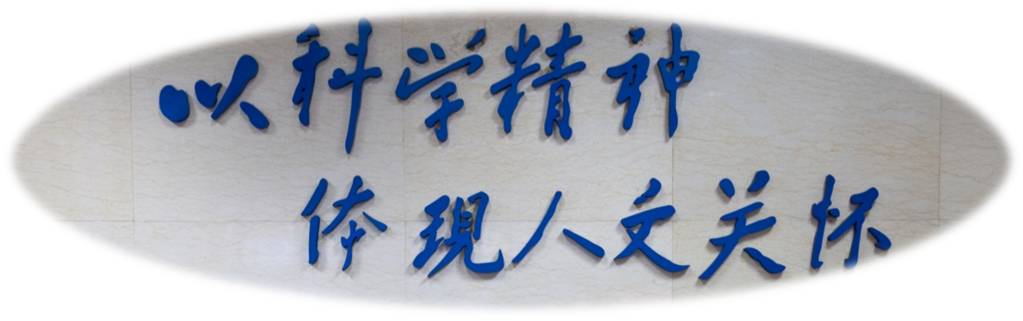 以科学精神
体现人文关怀